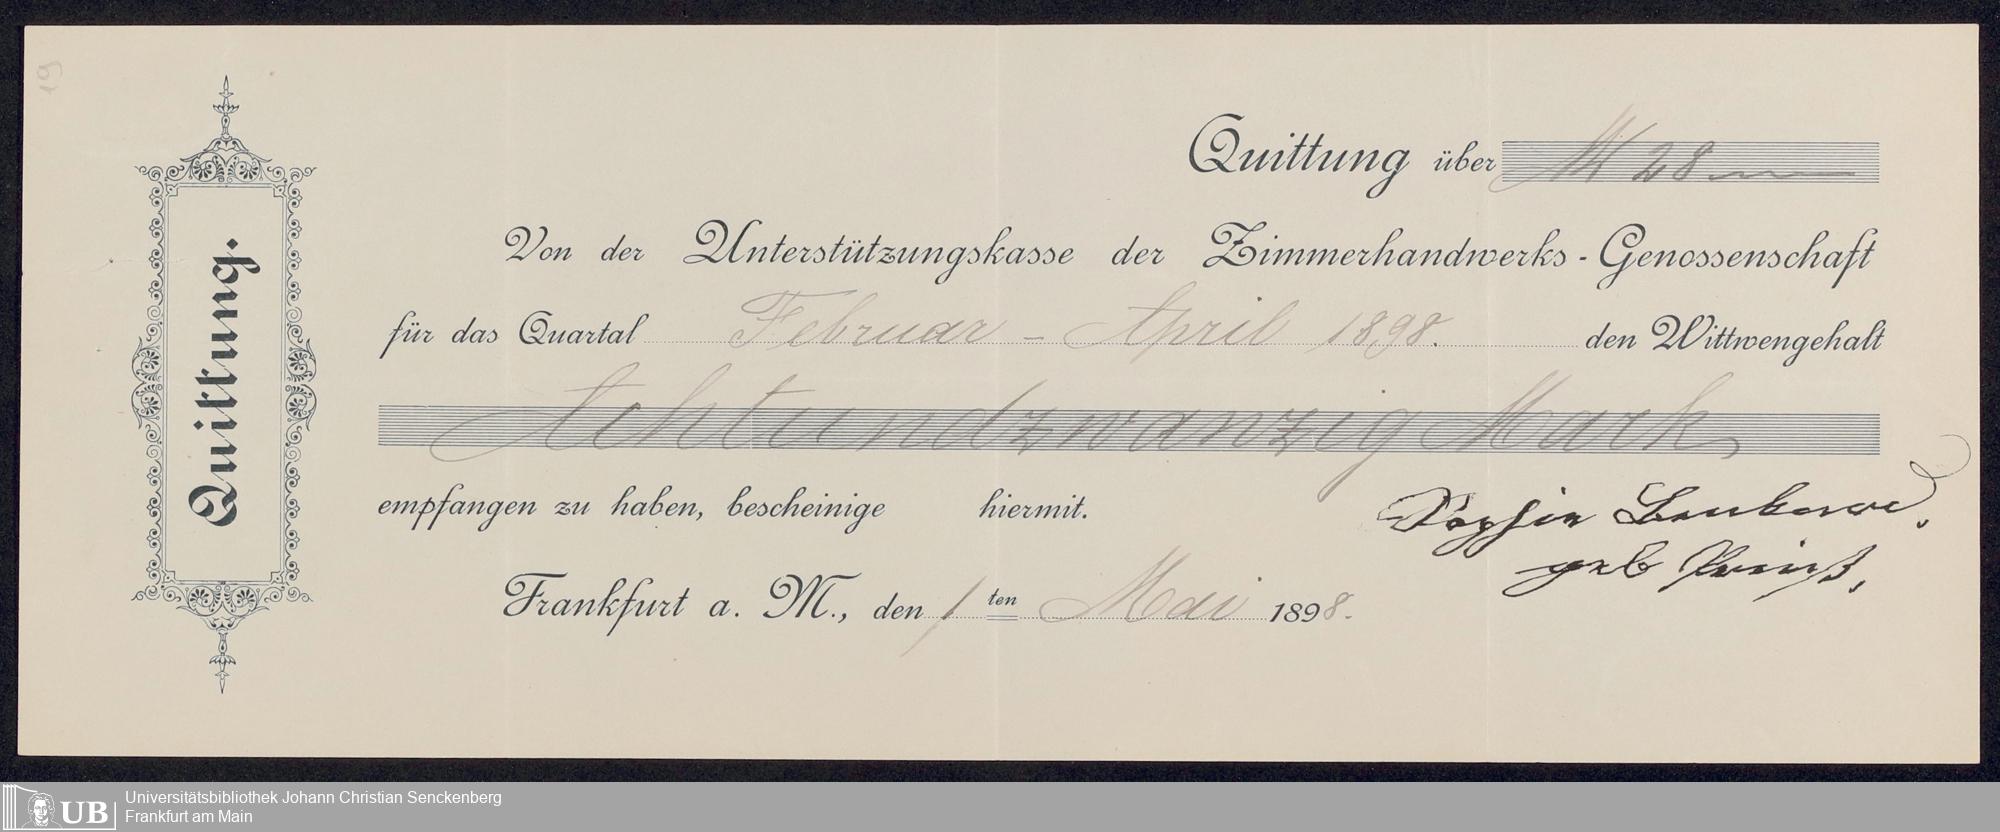 19
Quittung.
Quittung über M 28
Von der Unterstützungskasse der Zimmerhandwerks-Genossenschaft
für das Quartal Februar – April 1898. den Wittwengehalt
Achtundzwanzig Mark
empfangen zu haben, bescheinige hiermit.
Sophie
geb
Frankfurt a. M., den 1 ten Mai 1898.
UB
Universitätsbibliothek Johann Christian Senckenberg
Frankfurt am Main